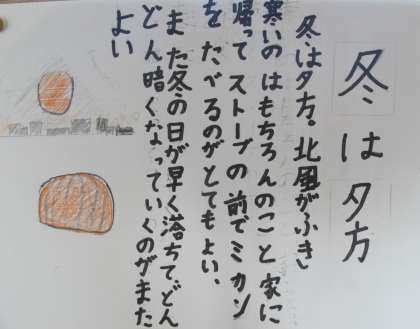 冬は夕方
冬は夕方。北風がふき
寒いのはもちろんのこと家に
帰ってストーブの前でミカン
を たべるのがとてもよい、
また冬の日が早く落ちてどん
どん暗くなっていくのがまた
よい